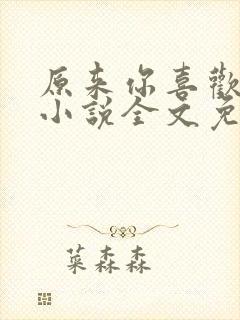 原來你喜歡
小說全文免
菜森森